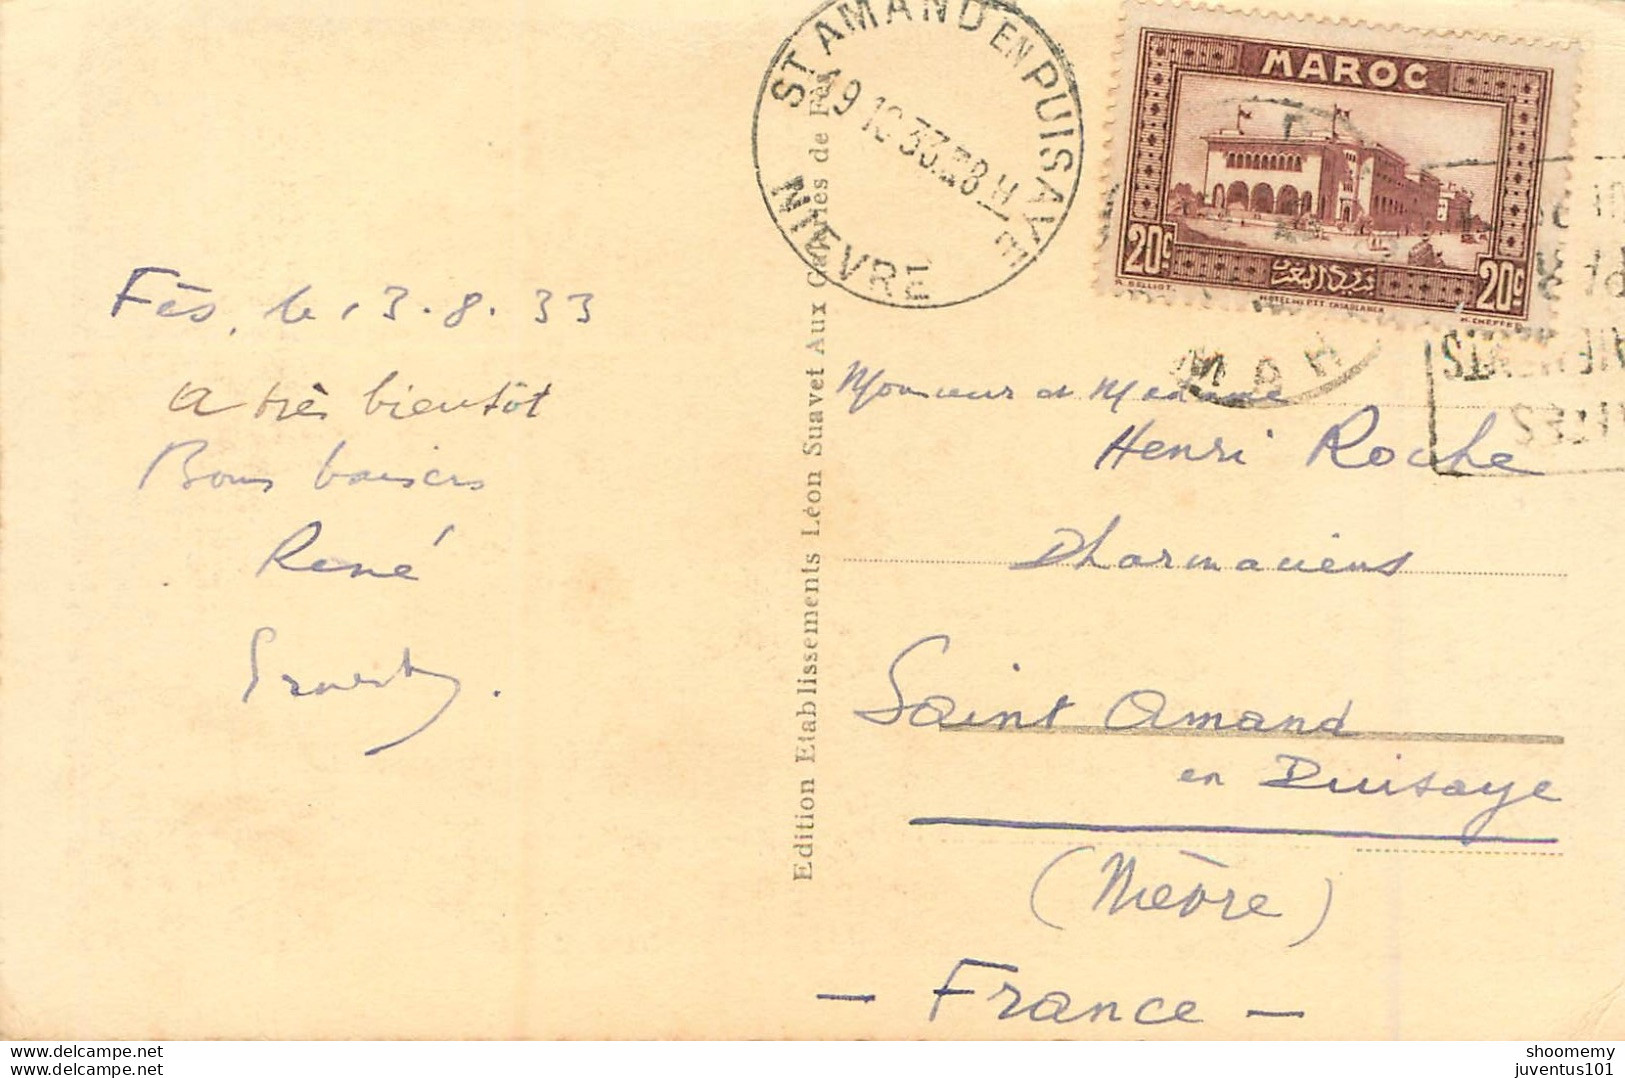 ST AMAND EN PUISAYE
NIEVRE
MAROC
20c 20c
HOTEL DES P.T.T. CASABLANCA
Fès, le 13.8.33
A très bientôt
Bons baisers
René
Ernest.
Edition Etablissements Léon Suavet Aux Galeries de Fès
Monsieur et Madame
Henri Roche
Pharmaciens
Saint Amand
en Puisaye
(Nièvre)
— France —
All rights reserved
DELCAMPE.NET
shoomemy
juventus101